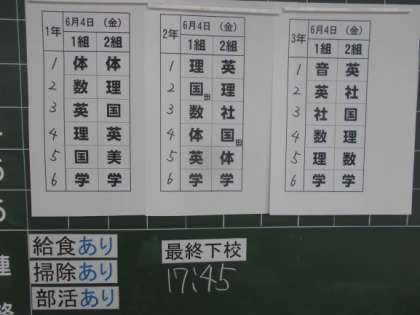 1年 6月4日 (金)
1組 2組
1 体 体
2 数 理
3 英 国
4 理 英
5 国 美
6 学 学
2年 6月4日 (金)
1組 2組
1 理 英
2 国 理
3 数 社
4 体 国
5 英 体
6 学 学
3年 6月4日 (金)
1組 2組
1 音 英
2 英 社
3 社 国
4 数 理
5 理 数
6 学 学
給食あり
掃除あり
部活あり
最終下校
17:45